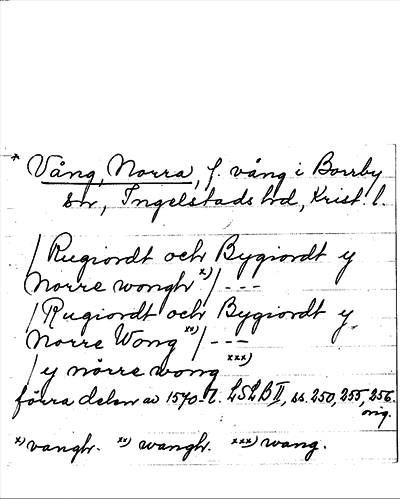 * Vång, Norra, f. vång i Borrby
sn, Ingelstads hd, Krist. l.
/ Rugiordt och Bygiordt y
Norre wongh x) / - - -
/ Rugiordt och Bygiordt y
Norre Wong xx) / - - -
/ y nörre wong xxx)
förra delen av 1570-t. LSLB II, ss. 250, 255, 256.
orig.
x) vangh. xx) wangh. xxx) wang.